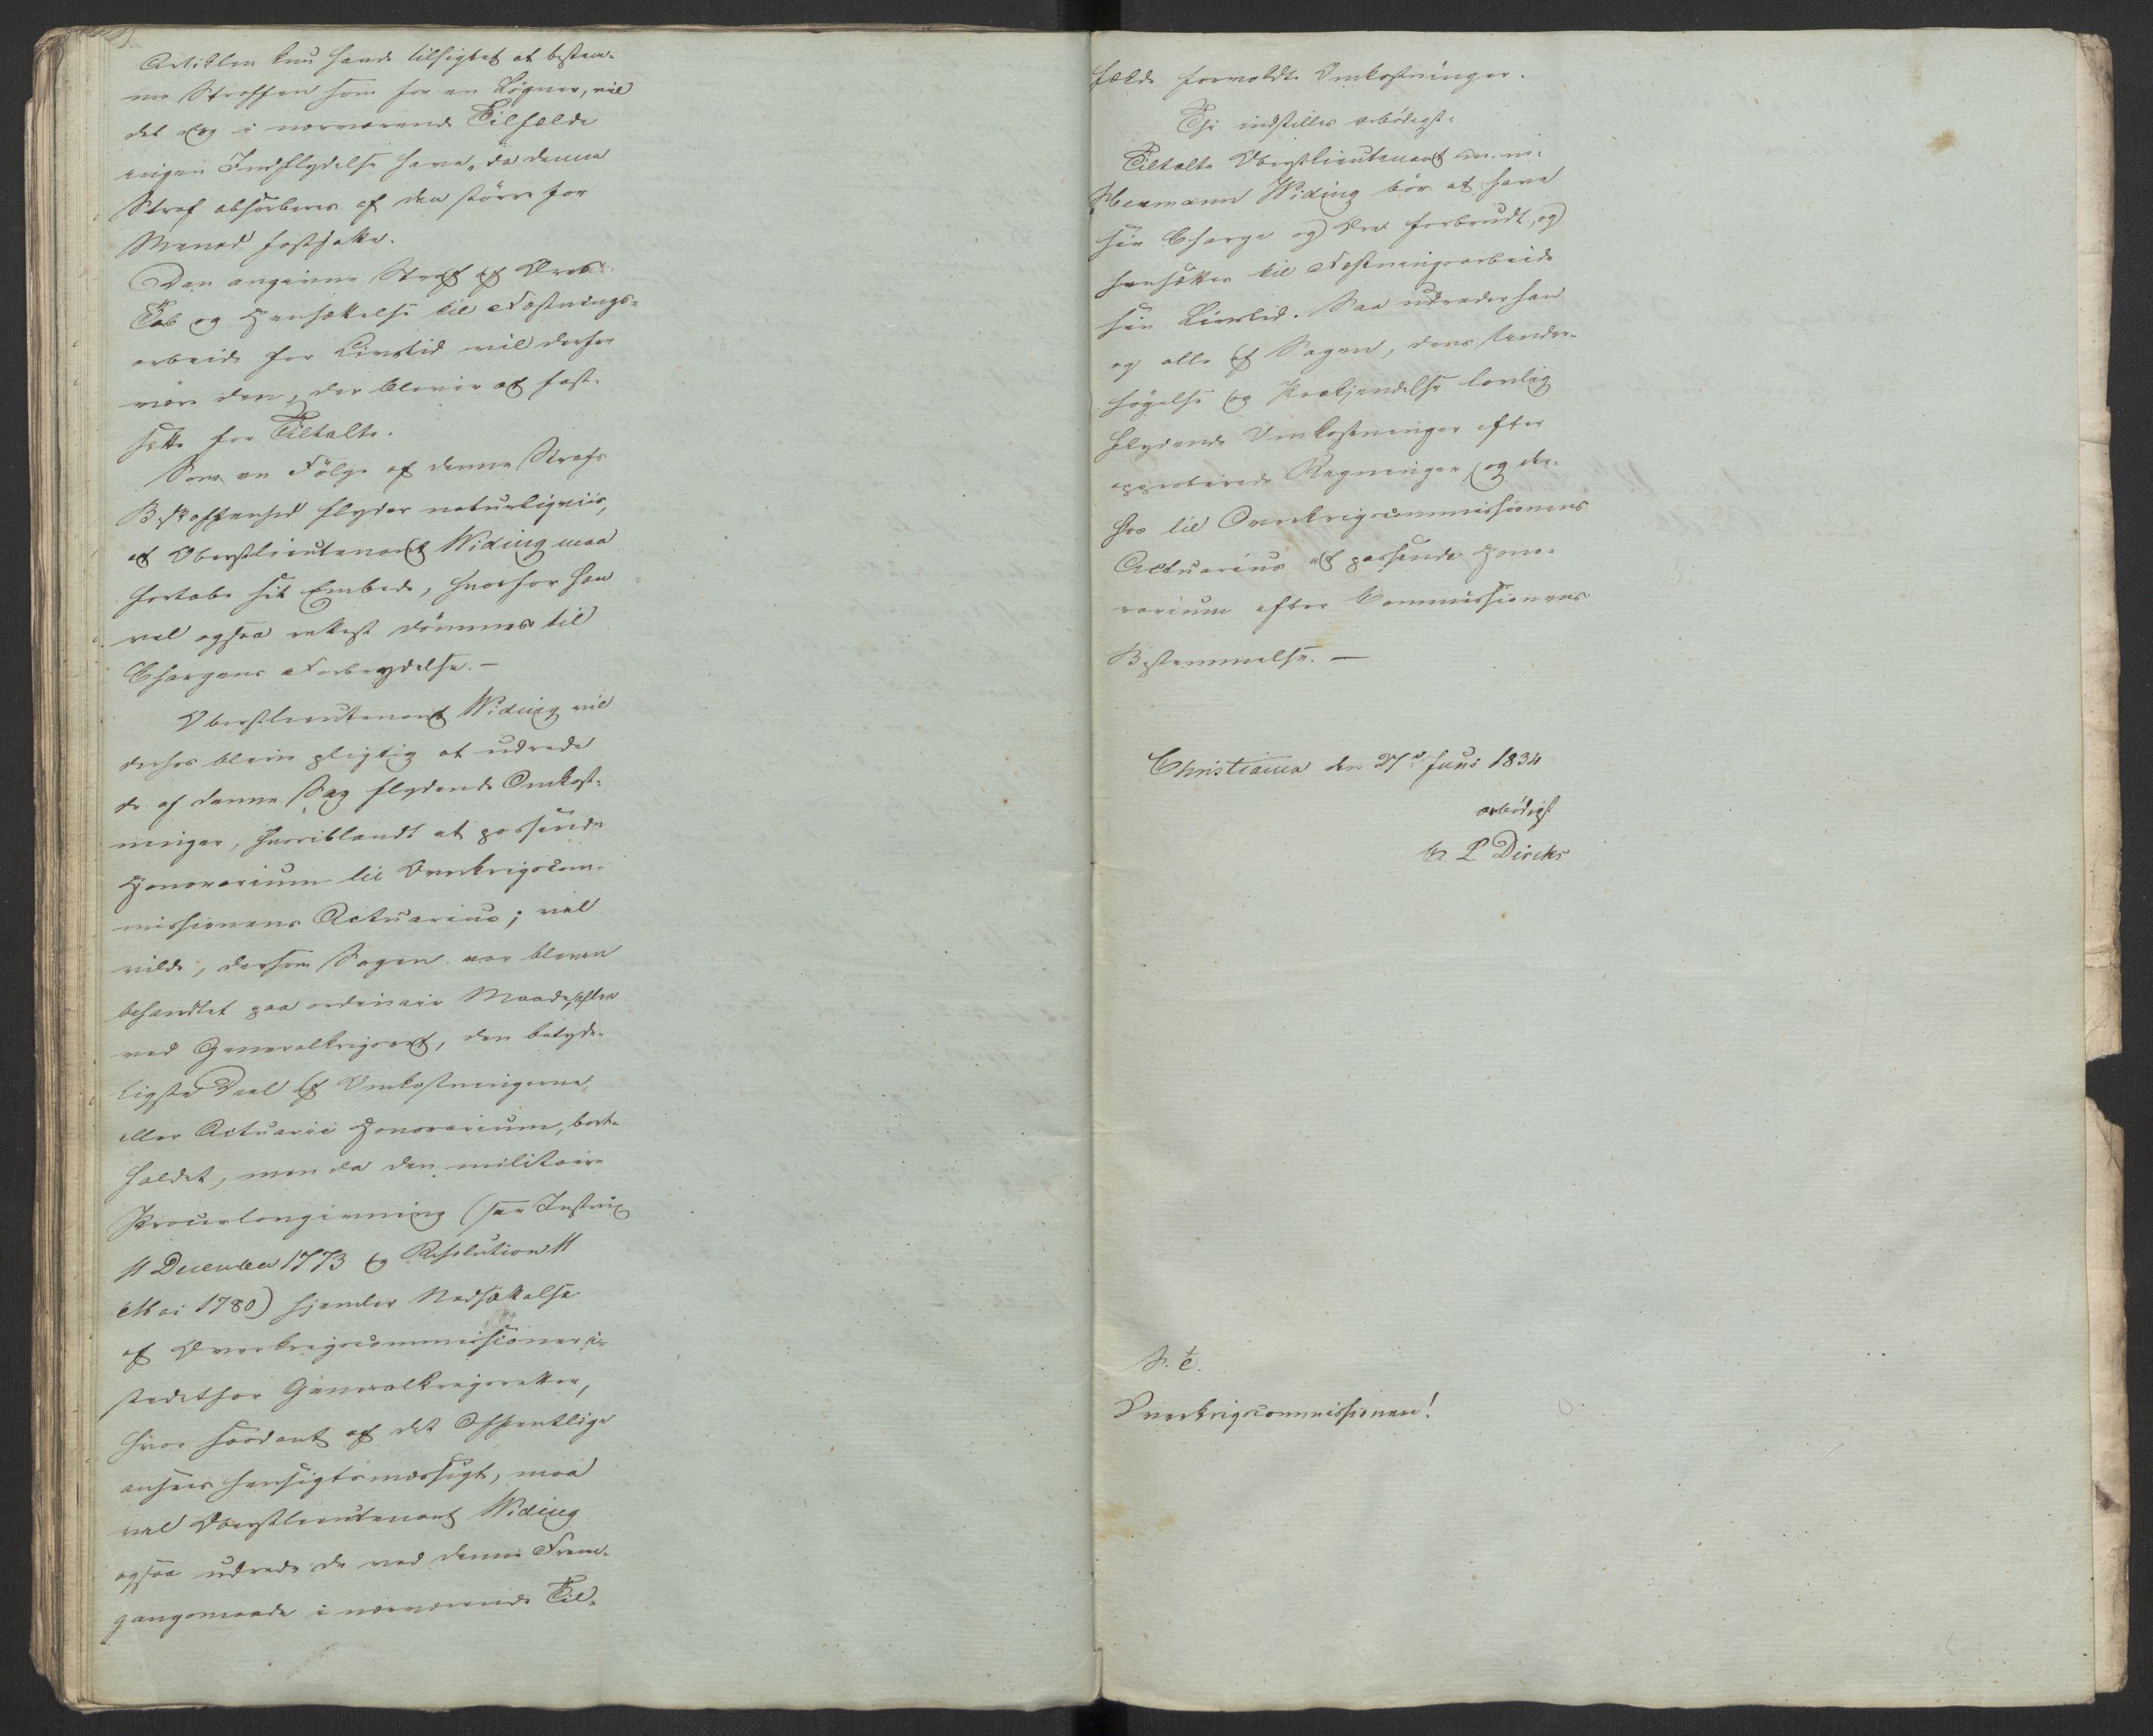 Artiklen kun havde tilsigtet at bestem-
me Straffen som for en Løgner, vil
det dog i nærværende Tilfælde
ingen Indflydelse have, da denne
Straf absorberes af den større for
Meened fastsatte.
Den angivne Straf af Æres
Tab og Hensættelse til Fæstnings-
arbeide for Livstid vil derfor
være den, der bliver at fast-
sætte for Tiltalte.
Som en Følge af denne Strafs
Beskaffenhed flyder naturligviis,
at Oberstlieutenant Widing maa
fortabe sit Embede, hvorfor han
vel ogsaa rettest dømmes til
Chargens Forbrydelse. —
Oberstlieutenant Widing vil
derhos blive pligtig at udrede
de af denne Sag flydende Omkost-
ninger, hvoriblandt et passende
Honorarium til Overkrigscom-
missionens Actuarius; vel
vilde, dersom Sagen var bleven
behandlet paa ordinair Maade,
ved Generalkrigsret, den betyde-
ligste Deel af Omkostningerne,
eller Actuarii Honorarium, bort-
faldet, men da den militaire
Proceslovgivning (see Instrux
11 December 1773 og Resolution 11
Mai 1780) hjemler Nedsættelse
af Overkrigscommissioner i-
stedetfor Generalkrigsretter,
hvor saadant af det Offentlige
ansees hensigtsmæssigt, maa
vel Oberstlieutenant Widing
ogsaa udrede de ved denne Frem-
gangsmaade i nærværende Til-
fælde forvoldte Omkostninger.
Thi indstilles ærbødigst:
Tiltalte Oberstlieutenant
Hermann Widing bør at have
sin Charge og Ære forbrudt, og
hensættes til Fæstningsarbeide
sin Livstid. Saa udreder han
og alle af Sagen, dens Under-
søgelse og Paakjendelse lovlig
flydende Omkostninger efter
approberede Regninger, og der-
hos til Overkrigscommissionens
Actuarius et passende Hono-
rarium efter Commissionens
Bestemmelse. —
Christiania den 27de Juni 1834
ærbødigst
L Dircks
S. T.
Overkrigscommissionen!